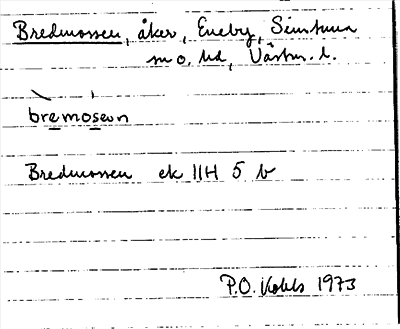 Bredmossen, åker, Eneby, Simtuna
sn o. hd, Västm. l.
bremosen
Bredmossen ek 11H 5 b
P.O. Kohls 1973